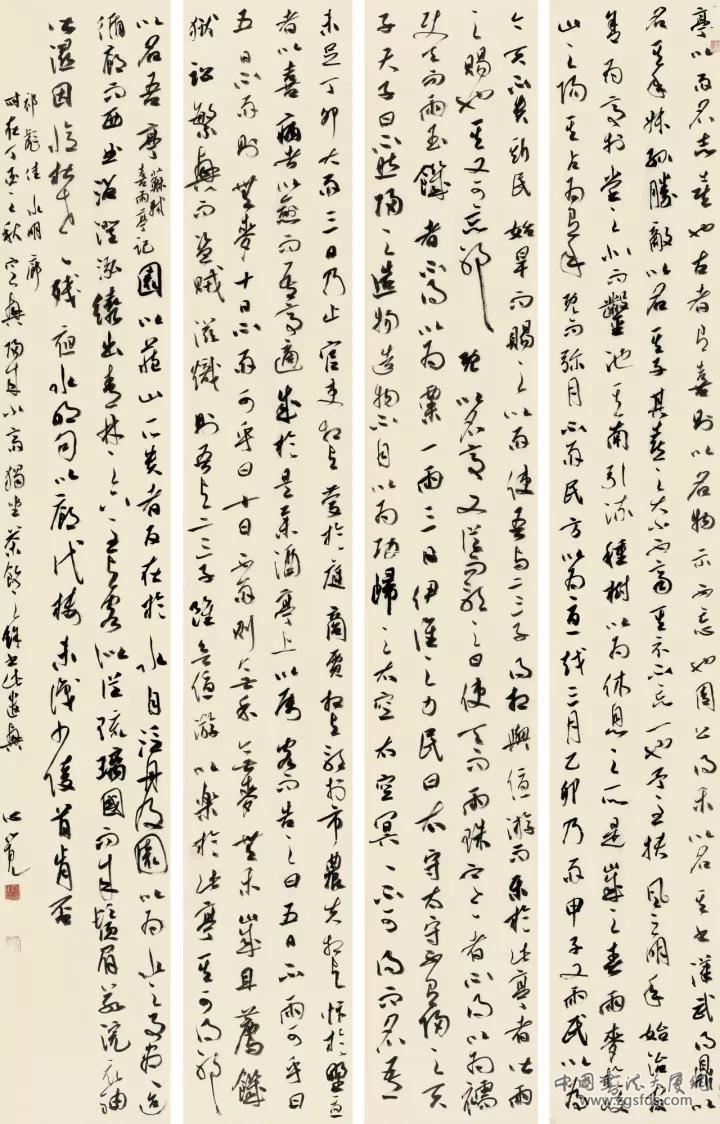 亭以雨名志喜也古者有喜則以名物示不忘也周公得禾以名其書漢武得鼎以
名其年叔孫勝敵以名其子其喜之大小不齊其示不忘一也予至扶風之明年始治官
舍為亭於堂之北而鑿池其南引流種樹以為休息之所是歲之春雨麥於岐
山之陽其占為有年既而彌月不雨民方以為憂越三月乙卯乃雨甲子又雨民以為
今天不遺斯民始旱而賜之以雨使吾與二三子得相與優游而樂於此亭者皆雨
之賜也其又可忘耶 既以名亭又從而歌之曰使天而雨珠寒者不得以為襦
使天而雨玉饑者不得以為粟一雨三日伊誰之力民曰太守太守不有歸之天
子天子曰不然歸之造物造物不自以為功歸之太空太空冥冥不可得而名吾
未足丁卯大雨三日乃止官吏相與慶於庭商賈相與歌於市農夫相與忭於野憂
者以喜病者以愈而吾亭適成於是舉酒亭上以屬客而告之曰五日不雨可乎曰
五日不雨則無麥十日不雨可乎曰十日不雨則無禾無麥無禾歲且薦饑
獄訟繁興而盜賊滋熾則吾與二三子雖欲優游以樂於此亭其可得耶
以名吾亭 蘇軾喜雨亭記 園以藏山所貴者反在於水自泛舟及園以為水之事盡迨
循廊而西曲沼澄泓繞出青林之下主與客似從琉璃國而來鬚眉若浣衣袖
皆濕因憶杜老殘夜水明句以廊代樓未識少陵首肯否
祁彪佳水明廊
時在丁酉之秋 小齋獨坐茶飲之餘書此遣興
中国书法大厦网
www.zgsfds.com